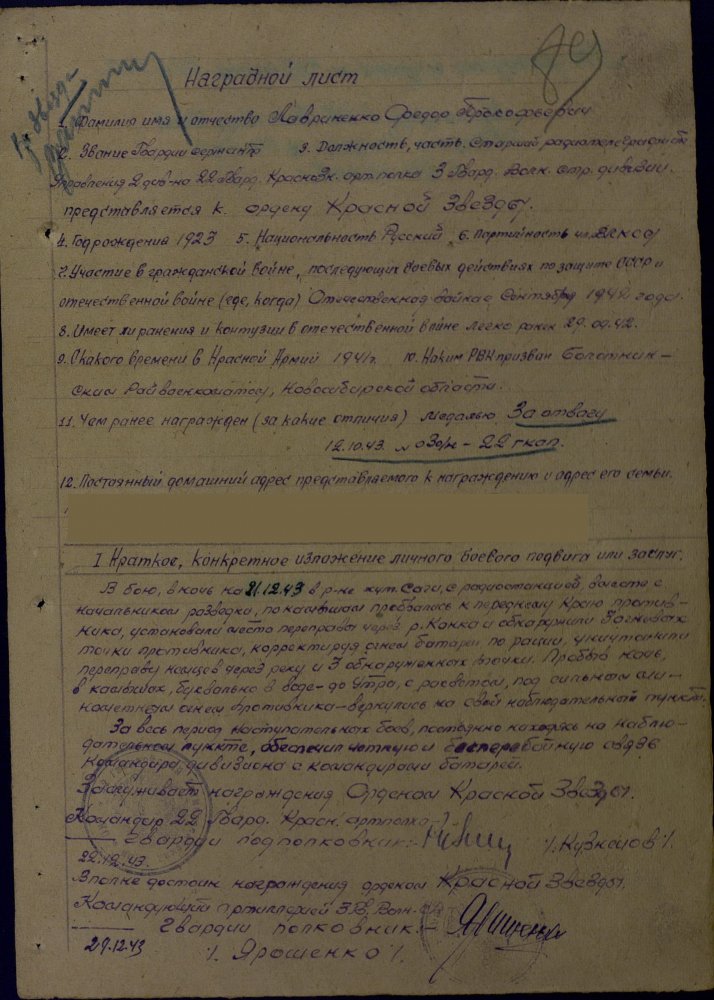 84
Кр. Звезда
Наградной лист
1. Фамилия имя и отчество Лавриненко Федор Прокофьевич
2. Звание Гвардии сержант 3. Должность, часть. Старший радиотелеграфист
Управления 2 див-на 22 Гвард. Краснозн. арт. полка 3 Гвард. Волн. Стр. дивизии.
представляется к ордену Красной Звезды.
4. Год рождения 1923 5. Национальность Русский 6. Партийность чл. ВЛКСМ
7. Участие в гражданской войне, последующих боевых действиях по защите СССР и
отечественной войне (где, когда) Отечественная война с Сентября 1942 года.
8. Имеет ли ранения и контузии в отечественной войне легко ранен 29.09.42.
9. С какого времени в Красной Армии 1941г. 10. Каким РВК призван Болотнин-
ским Райвоенкоматом, Новосибирской области.
11. Чем ранее награжден (за какие отличия) медалью За отвагу
12.10.43. – 22 гкап.
12. Постоянный домашний адрес представляемого к награждению и адрес его семьи.
I Краткое, конкретное изложение личного боевого подвига или заслуг.
В бою, в ночь на 21.12.43 в р-не хут. Саги, с радиостанцией, вместе с
начальником разведки, по камышам пробрались к переднему краю против-
ника, установили место переправы через р. Конка и обнаружили 3 огневых
точки противника, корректируя огнем батареи по рации, уничтожили
переправу немцев через реку и 3 обнаруженных точки. Пробыв ночь,
в камышах, буквально в воде – до утра, с рассветом, под сильным ми-
нометным огнем противника – вернулись на свой наблюдательный пункт.
За весь период наступательных боев, постоянно находясь на наблю-
дательном пункте, обеспечил четкую и бесперебойную связь
командира дивизиона с командирами батарей.
Заслуживает награждения Орденом Красной Звезды.
Командир 22 Гвард. Красн. артполка
Гвардии подполковник:- /.Кузнецов/.
22.12.43.
Вполне достоин награждения орденом Красной Звезды.
Командующий артиллерией 3 Гв. Волн.
Гвардии полковник:-
29.12.43 /.Ярошенко/.